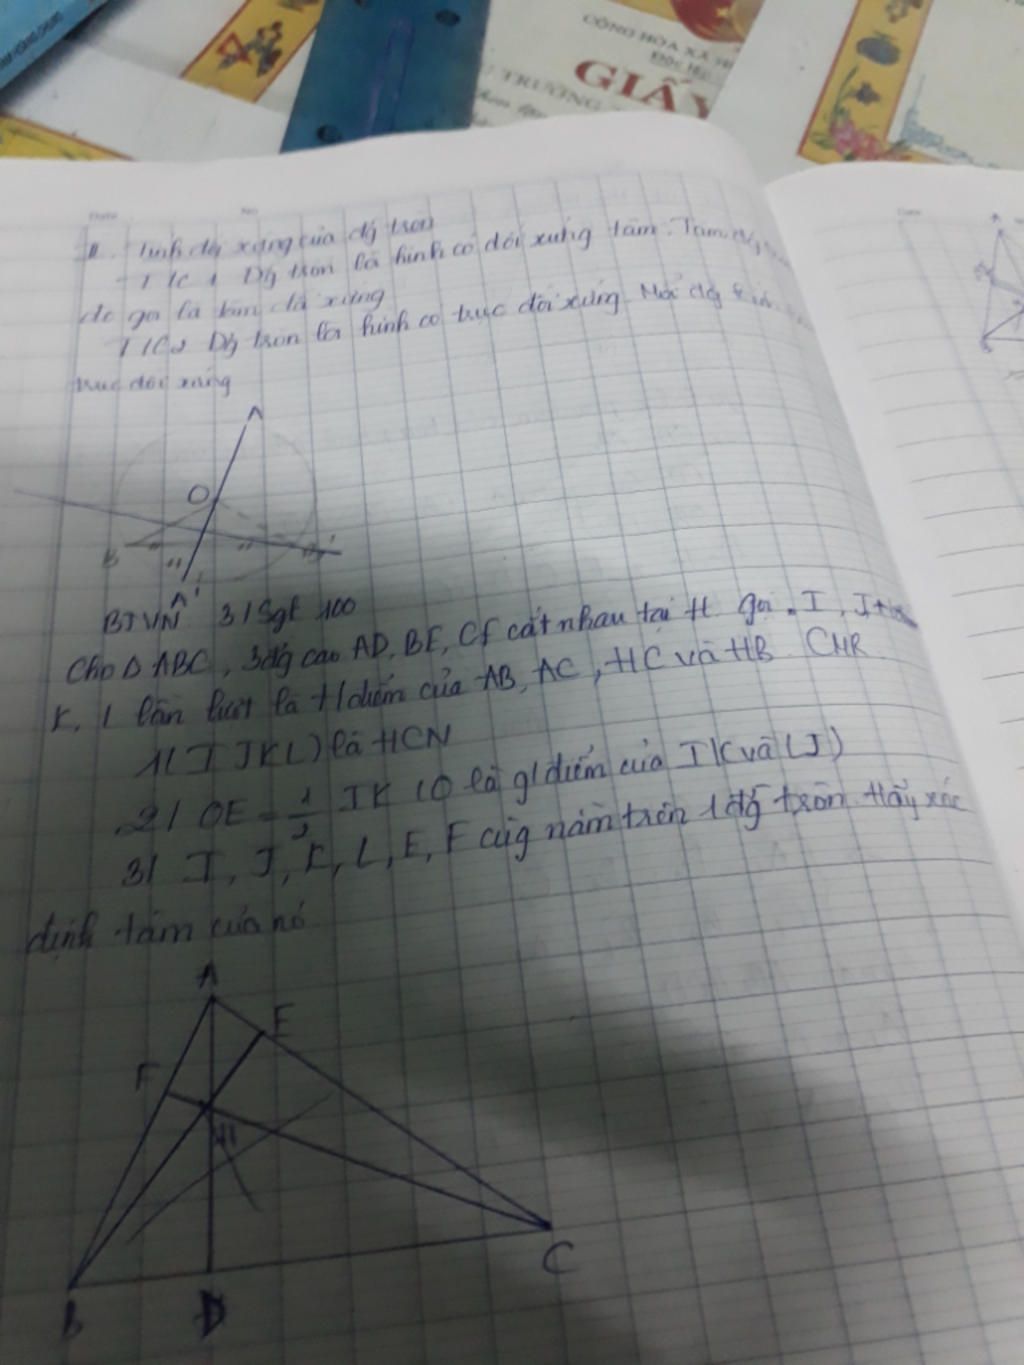 CỘNG HÒA XÃ
GIẤY
TRƯỜNG
II. Tính đx xứng của đg tròn
T/C 1 Đg tròn là hình có đối xứng tâm. Tâm đg
đc gọi là tâm đx xứng
T/C2 Đg tròn là hình có trục đối xứng. Mỗi đg
trục đối xứng
A
O
B
A'
BTVN 3/Sgt 100
Cho Δ ABC, 3 đg cao AD, BE, CF cắt nhau tại H. gọi I, J
K, L lần lượt là t/điểm của AB, AC, HC và HB. CMR
1/ (IJKL) là HCN
2/ OE = 1/2 JK (O là g/điểm của IK và LJ)
3/ I, J, K, L, E, F cùg nằm trên 1 đg tròn. Hãy xác
định tâm của nó
A
E
F
H
C
B
D